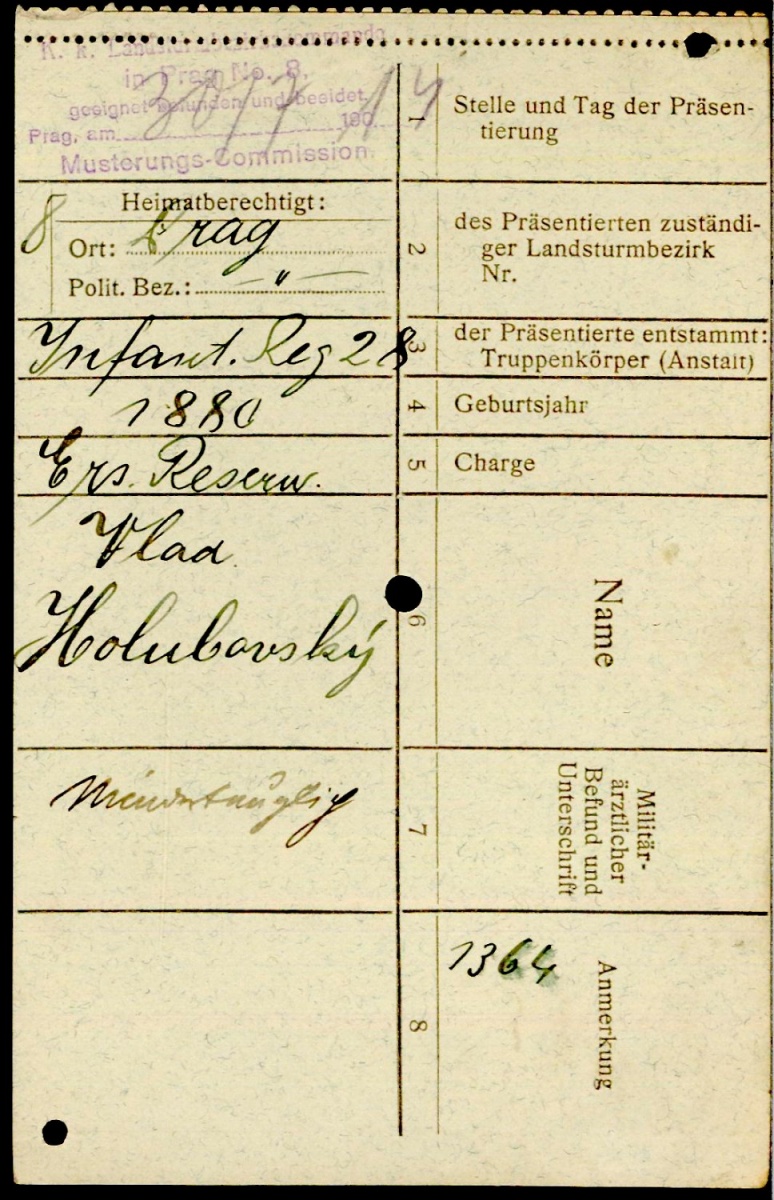 K. k. Landsturmbezirkscommando
in Prag No. 8.
geeignet befunden und beeidet.
30/7 14
Prag, am 190
Musterungs-Commission.
1
Stelle und Tag der Präsen-
tierung
8
Heimatberechtigt:
Ort: Prag
Polit. Bez.: — " —
2
des Präsentierten zuständi-
ger Landsturmbezirk
Nr.
Infant. Reg 28
3
der Präsentierte entstammt:
Truppenkörper (Anstalt)
1880
4
Geburtsjahr
Ers. Reserv.
5
Charge
Vlad.
Holubovský
6
Name
mindertauglich
7
Militär-
ärztlicher
Befund und
Unterschrift
8
1364
Anmerkung